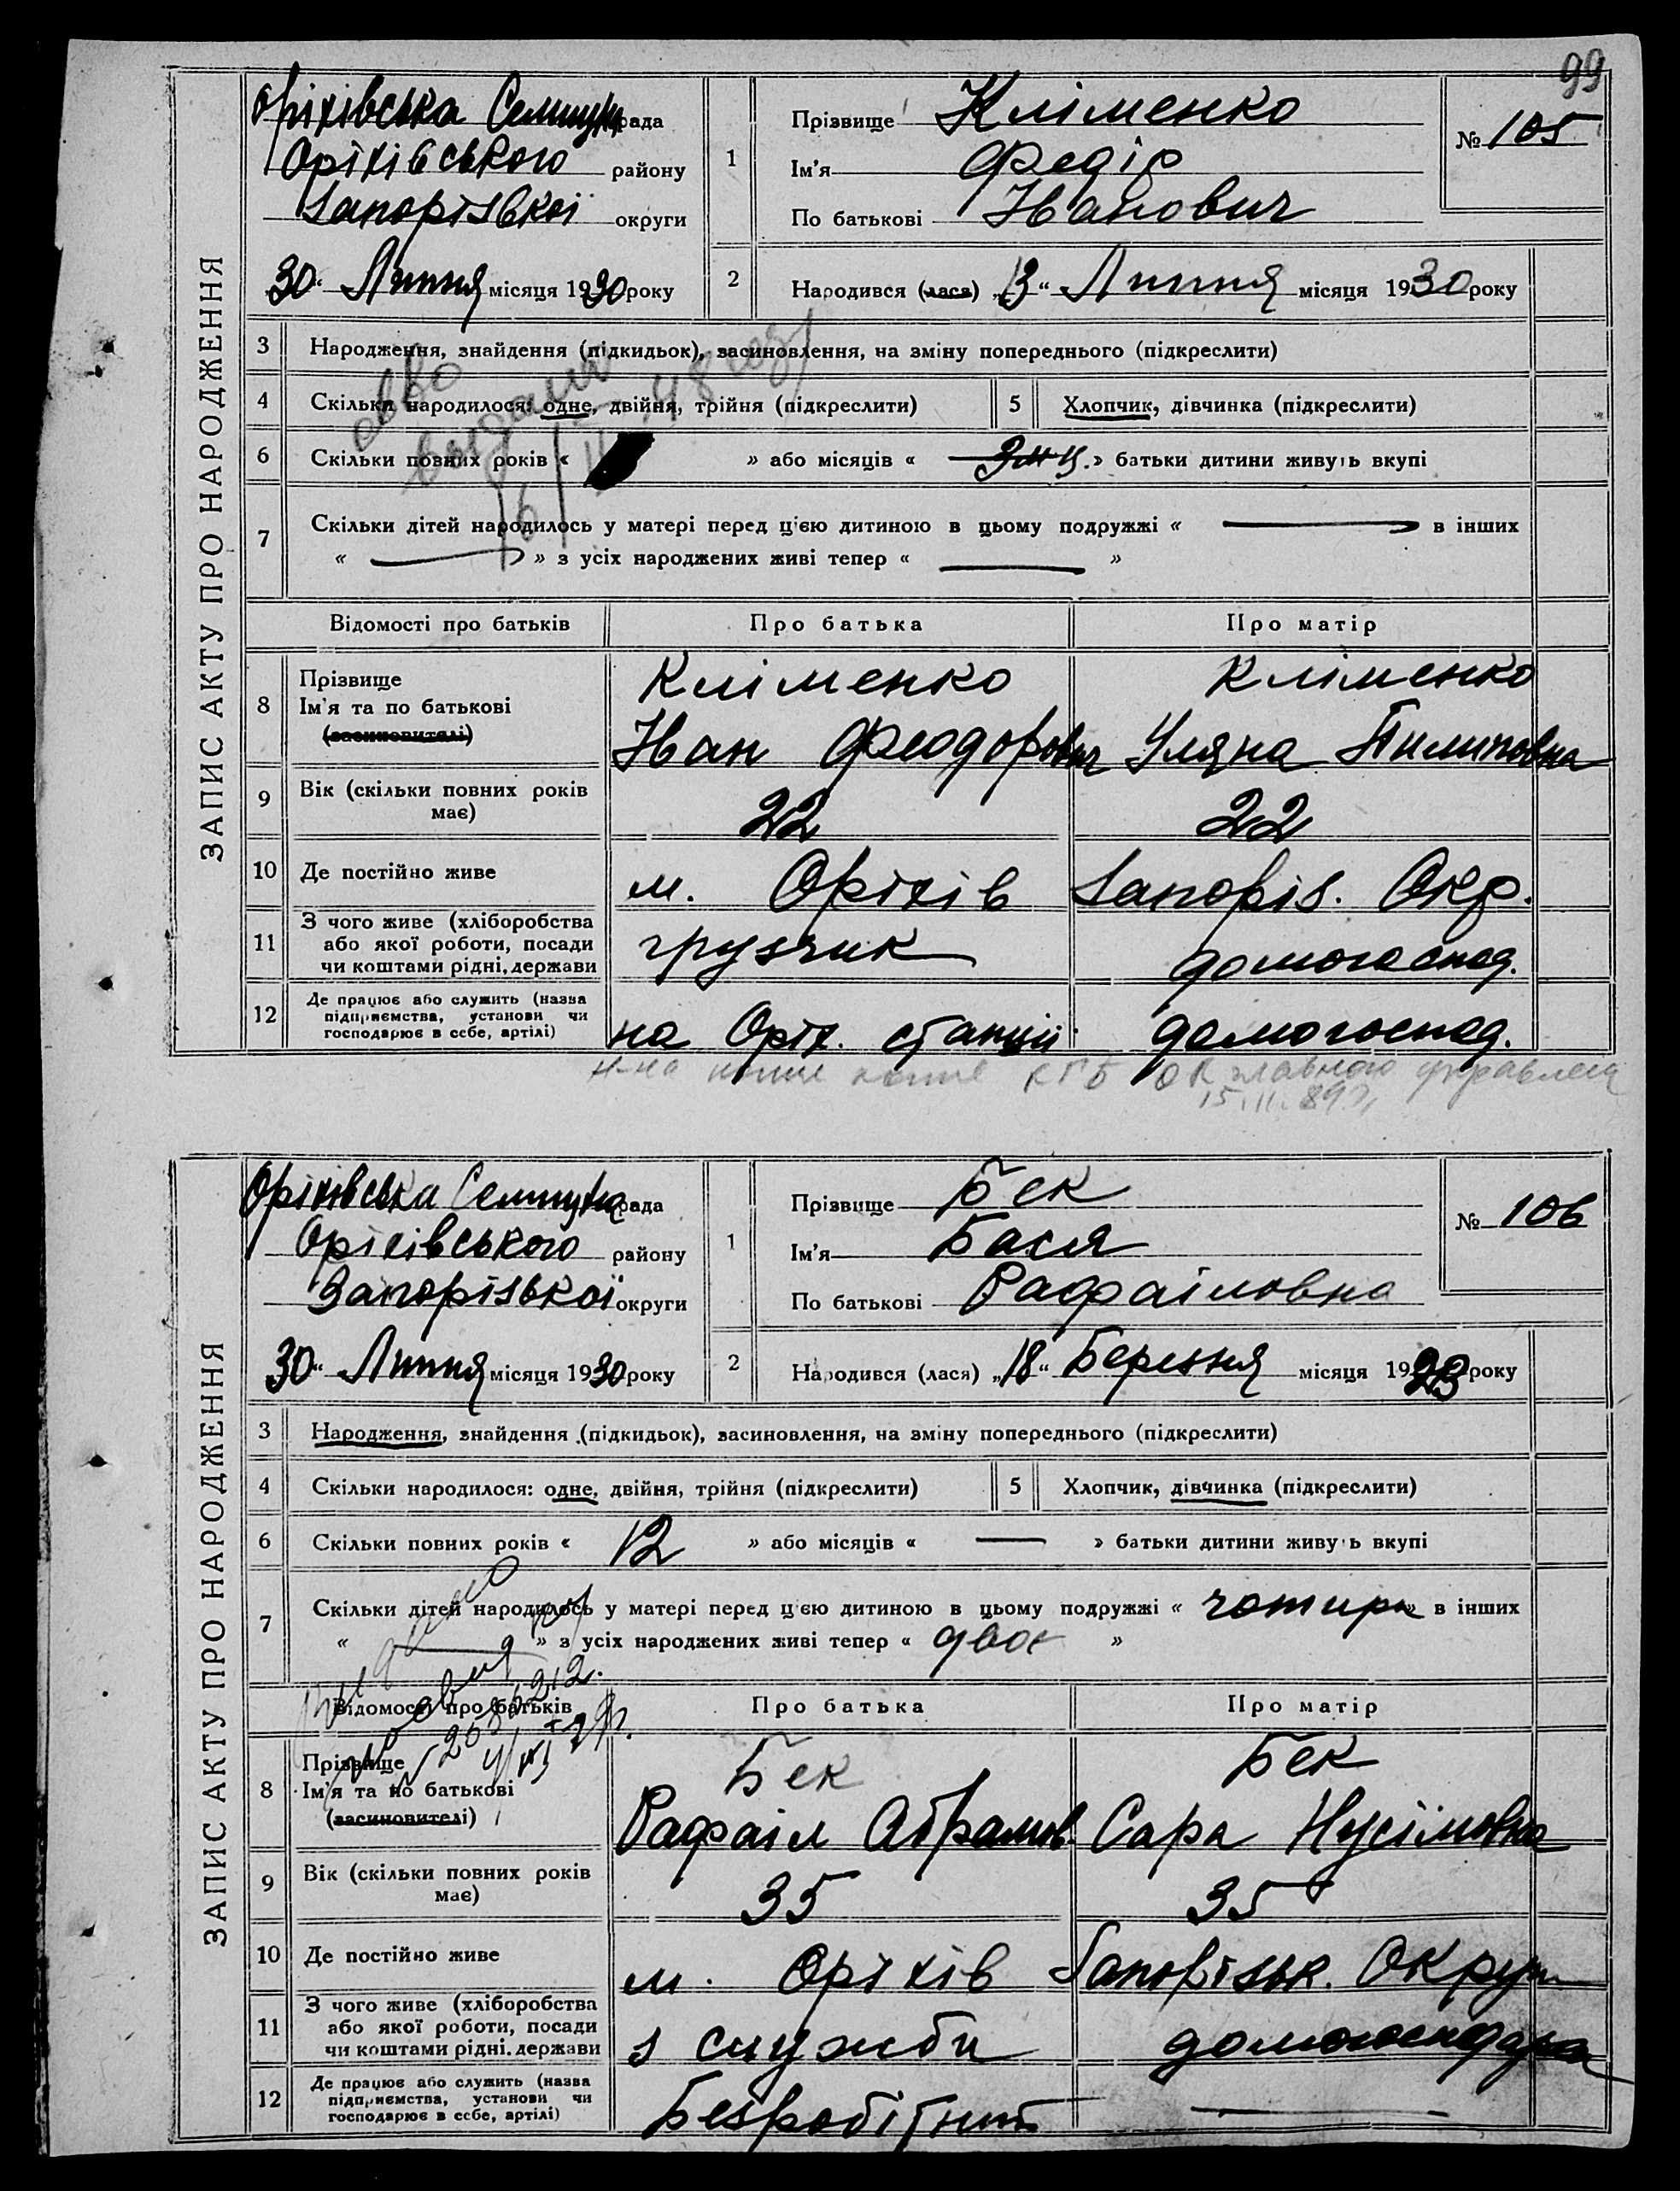 99
ЗАПИС АКТУ ПРО НАРОДЖЕННЯ
Оріхівська Селищна рада
Оріхівського району
Запорізької округи
30 " Липня місяця 1930 року
1
Прізвище Кліменко
Ім'я Федір
По батькові Іванович
№ 105
2
Народився (лася) „13" Липня місяця 1930 року
3 Народження, знайдення (підкидьок), засиновлення, на зміну попереднього (підкреслити)
4 Скільки народилося: одне, двійня, трійня (підкреслити) 5 Хлопчик, дівчинка (підкреслити)
6 Скільки повних років « » або місяців « » батьки дитини живуть вкупі
7 Скільки дітей народилось у матері перед цією дитиною в цьому подружжі « — в інших
« — » з усіх народжених живі тепер « — »
Відомості про батьків Про батька Про матір
8 Прізвище Ім'я та по батькові (засиновителі)
Кліменко Кліменко
Іван Феодорович Уляна Пилиповна
9 Вік (скільки повних років має) 22 22
10 Де постійно живе м. Оріхів Запоріз. Окр.
11 З чого живе (хліборобства або якої роботи, посади чи коштами рідні, держави грузчик домогоспод.
12 Де працює або служить (назва підприємства, установи чи господарює в себе, артілі) на Оріх. станції домогоспод.
15.11.89
ЗАПИС АКТУ ПРО НАРОДЖЕННЯ
Оріхівська Селищна рада
Оріхівського району
Запорізької округи
30 " Липня місяця 1930 року
1
Прізвище Бек
Ім'я Бася
По батькові Рафаіловна
№ 106
2
Народився (лася) „18" Березня місяця 1923 року
3 Народження, знайдення (підкидьок), засиновлення, на зміну попереднього (підкреслити)
4 Скільки народилося: одне, двійня, трійня (підкреслити) 5 Хлопчик, дівчинка (підкреслити)
6 Скільки повних років « 12 » або місяців « — » батьки дитини живуть вкупі
7 Скільки дітей народилось у матері перед цією дитиною в цьому подружжі « чотири » в інших
« — » з усіх народжених живі тепер « двоє »
Відомості про батьків Про батька Про матір
8 Прізвище Ім'я та по батькові (засиновителі)
Бек Бек
Рафаіл Абрамов. Сара Нусімовна
9 Вік (скільки повних років має) 35 35
10 Де постійно живе м. Оріхів Запорізьк. Округи
11 З чого живе (хліборобства або якої роботи, посади чи коштами рідні, держави з служби домогосподарка
12 Де працює або служить (назва підприємства, установи чи господарює в себе, артілі) Безробітний —